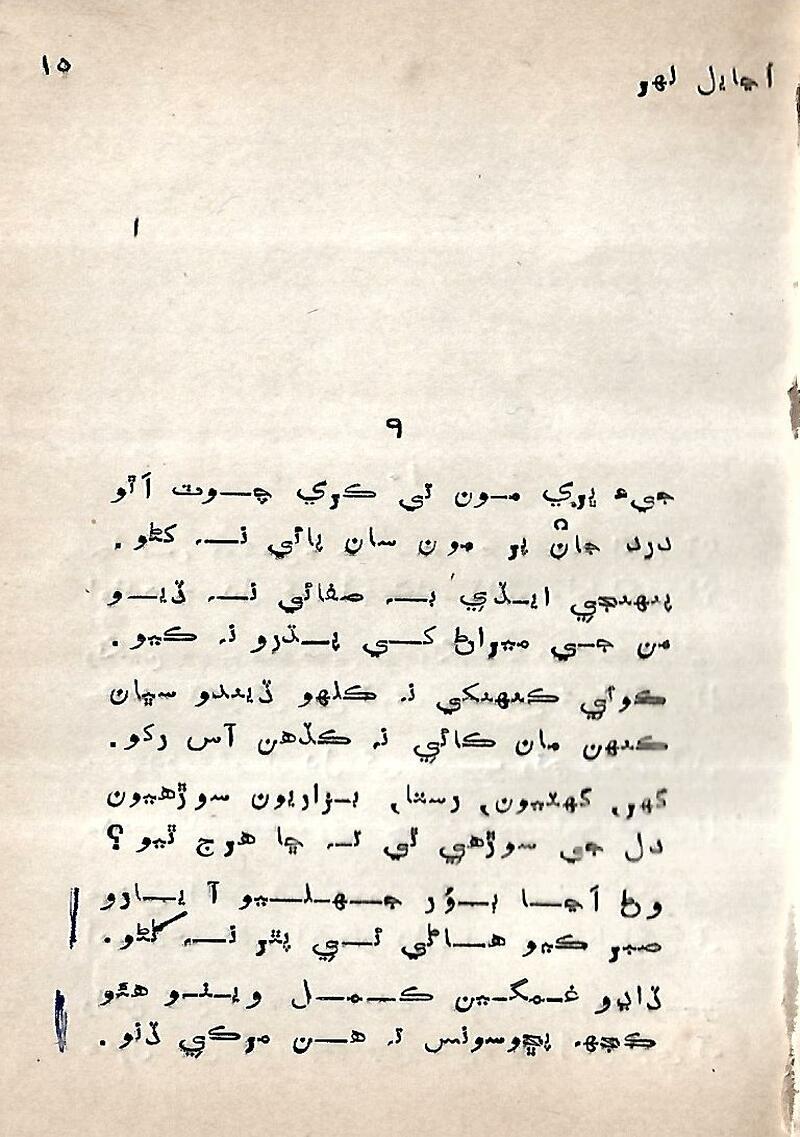 اڃايل لهر
١٥
١
٩
جيءَ ڀري مون تي ڪري چوٽ آئو
درد ڄاڻ پر مون سان ڀائي نہ کڻو.
پنهنجي ايڏي بہ صفائي نہ ڏيو
من جي ميراڻ کي پڌرو نہ ڪيو.
ڪوئي ڪنهنکي نہ ڪلهو ڏيندو سڀان
ڪنهن مان ڪائي نہ ڪڏهن آس رکو.
گهر، گهٽيون، رستا، بزاريون سوڙهيون
دل جي سوڙهي ٿي تہ ڇا هرج ٿيو؟
وڻ اڃا ٻوُر جهليو آ يارو
صبر ڪيو هاڻي ئي پٿر نہ کڻو.
ڏاڍو غمگين ڪمل ويٺو هئو
ڪجهہ پڇوسونس تہ هن مرڪي ڏنو.